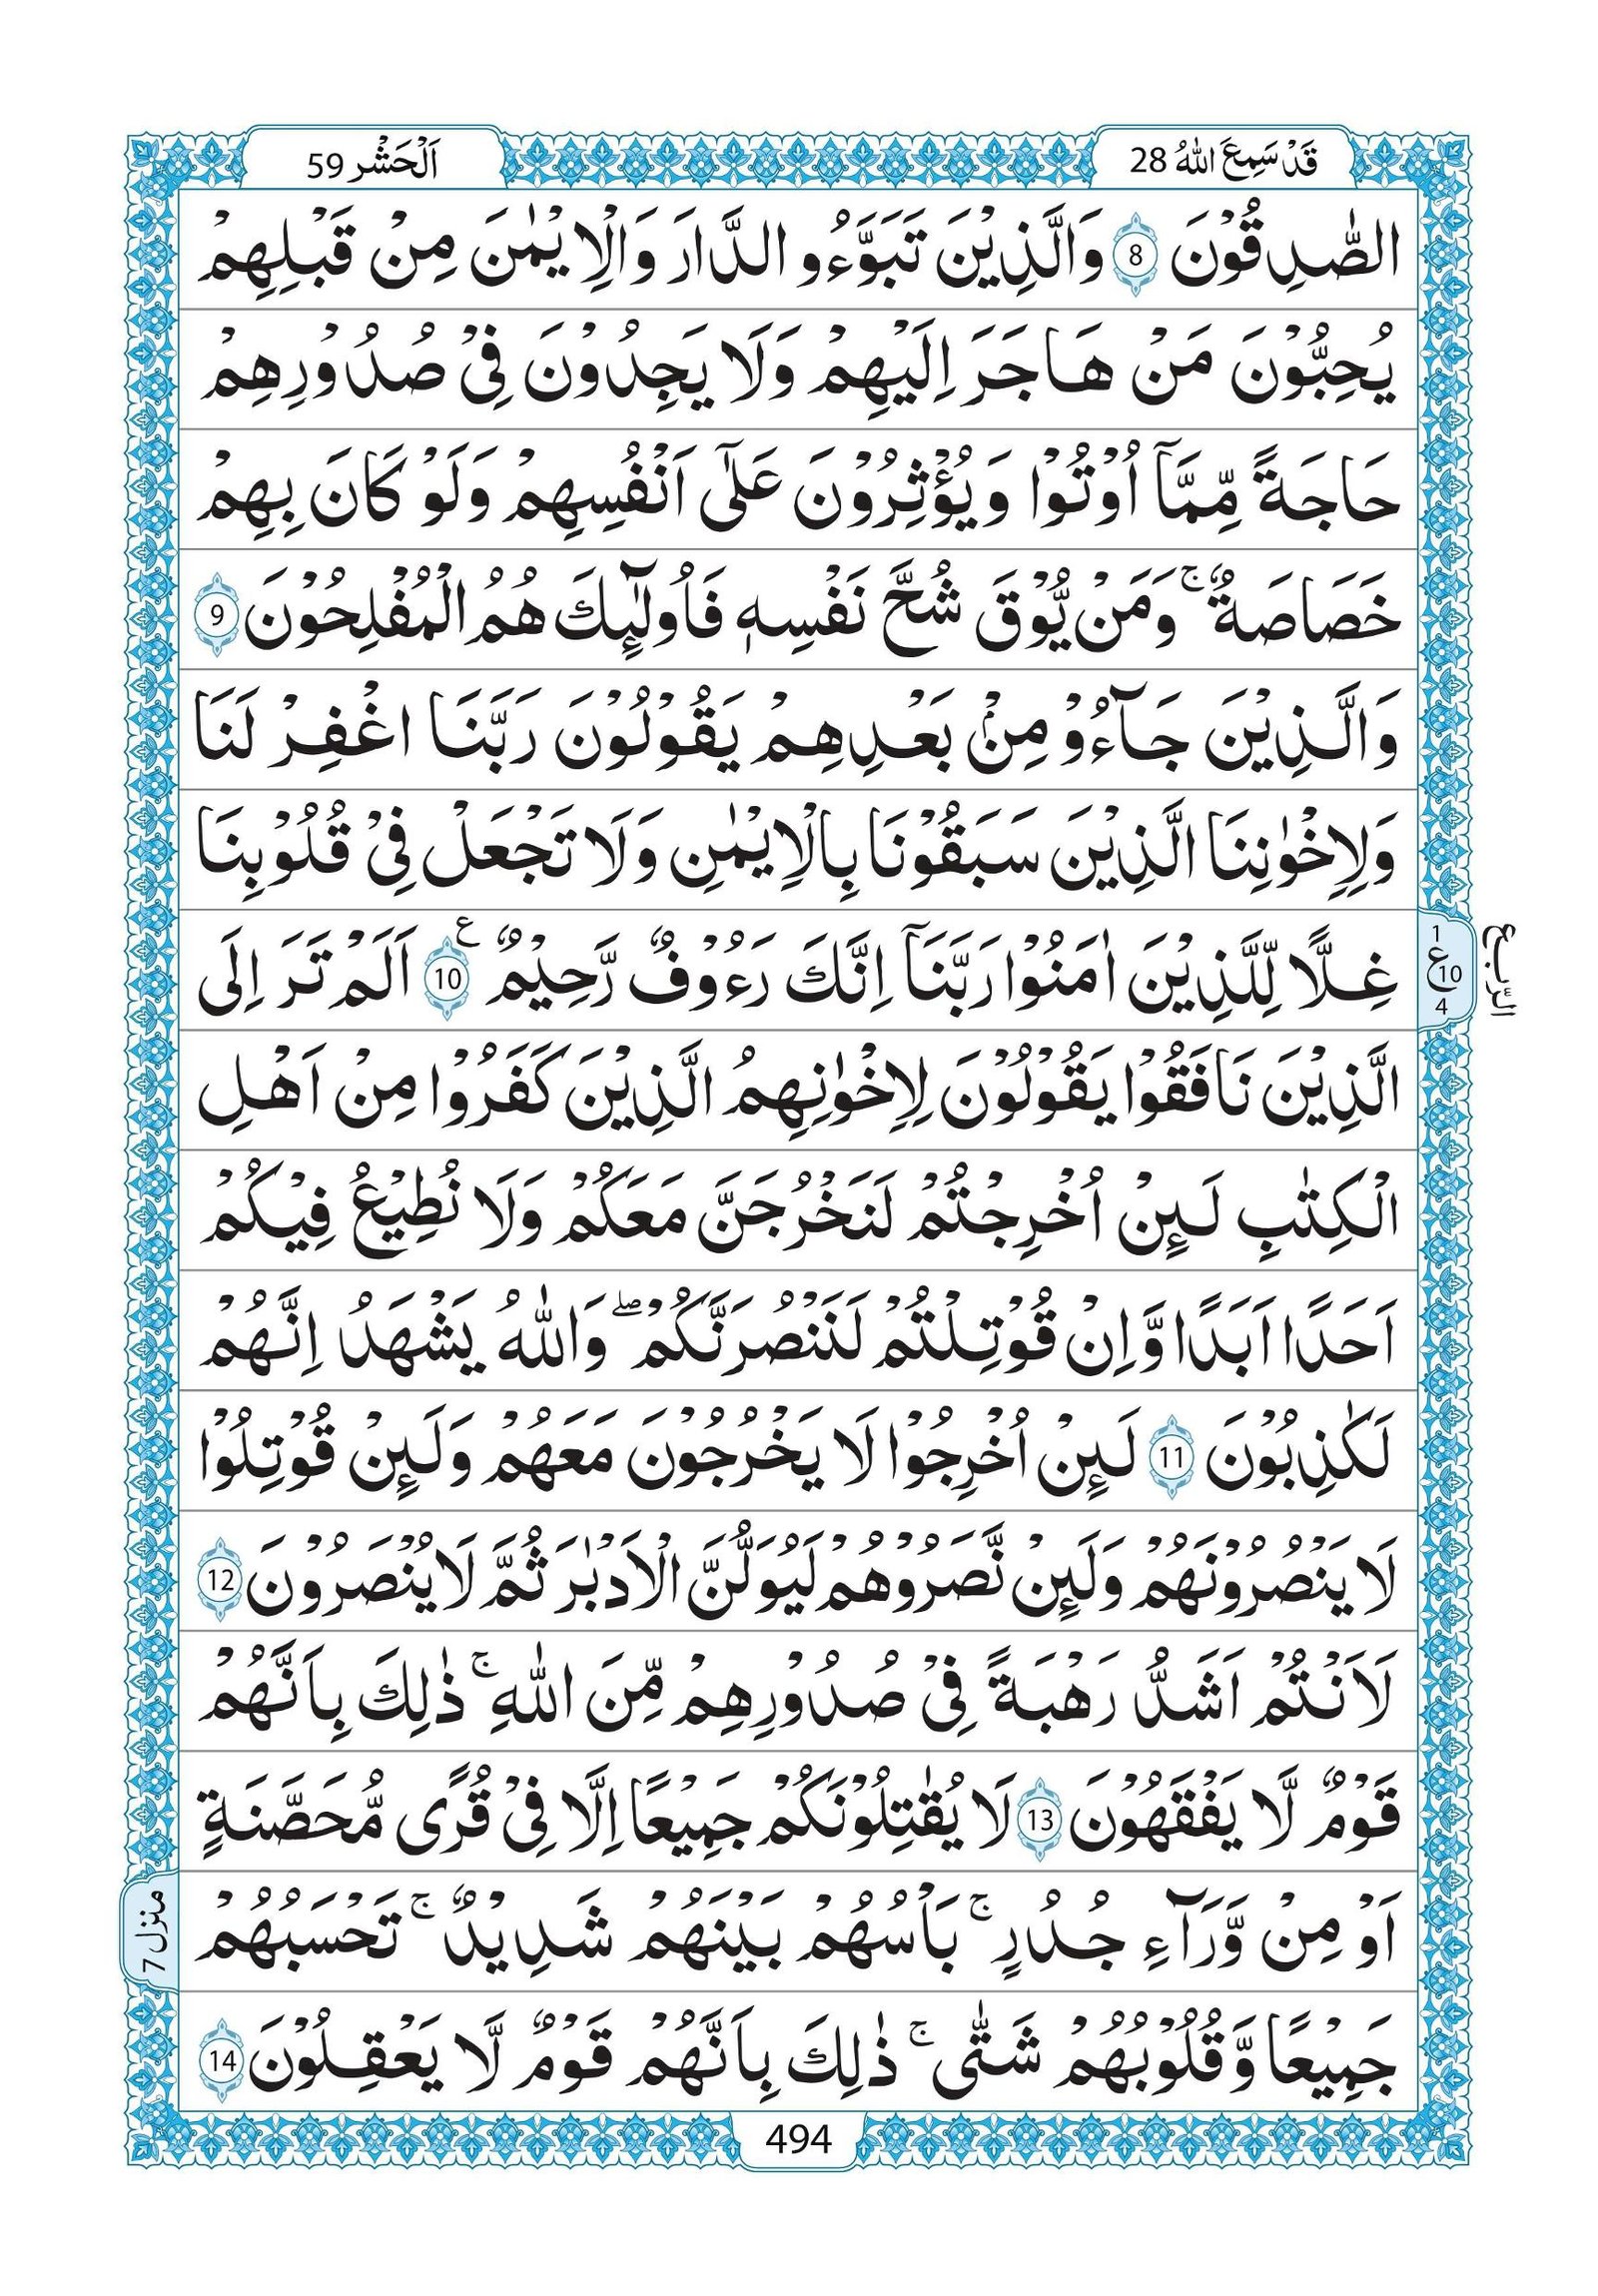 قَدْ سَمِعَ اللهُ 28
اَلْحَشْر 59
الصّٰدِقُوْنَ 8 وَالَّذِيْنَ تَبَوَّءُو الدَّارَ وَالْاِيْمٰنَ مِنْ قَبْلِهِمْ
يُحِبُّوْنَ مَنْ هَاجَرَ اِلَيْهِمْ وَلَا يَجِدُوْنَ فِيْ صُدُوْرِهِمْ
حَاجَةً مِّمَّآ اُوْتُوْا وَيُؤْثِرُوْنَ عَلٰٓى اَنْفُسِهِمْ وَلَوْ كَانَ بِهِمْ
خَصَاصَةٌ ۚ وَمَنْ يُّوْقَ شُحَّ نَفْسِهٖ فَاُولٰٓئِكَ هُمُ الْمُفْلِحُوْنَ 9
وَالَّذِيْنَ جَآءُوْ مِنْۢ بَعْدِهِمْ يَقُوْلُوْنَ رَبَّنَا اغْفِرْ لَنَا
وَلِاِخْوٰنِنَا الَّذِيْنَ سَبَقُوْنَا بِالْاِيْمٰنِ وَلَا تَجْعَلْ فِيْ قُلُوْبِنَا
غِلًّا لِّلَّذِيْنَ اٰمَنُوْا رَبَّنَآ اِنَّكَ رَءُوْفٌ رَّحِيْمٌ 10 ع اَلَمْ تَرَ اِلَى
1
ع 10
4
الرّبع
الَّذِيْنَ نَافَقُوْا يَقُوْلُوْنَ لِاِخْوٰنِهِمُ الَّذِيْنَ كَفَرُوْا مِنْ اَهْلِ
الْكِتٰبِ لَئِنْ اُخْرِجْتُمْ لَنَخْرُجَنَّ مَعَكُمْ وَلَا نُطِيْعُ فِيْكُمْ
اَحَدًا اَبَدًا وَّاِنْ قُوْتِلْتُمْ لَنَنْصُرَنَّكُمْ ۖ وَاللّٰهُ يَشْهَدُ اِنَّهُمْ
لَكٰذِبُوْنَ 11 لَئِنْ اُخْرِجُوْا لَا يَخْرُجُوْنَ مَعَهُمْ وَلَئِنْ قُوْتِلُوْا
لَا يَنْصُرُوْنَهُمْ وَلَئِنْ نَّصَرُوْهُمْ لَيُوَلُّنَّ الْاَدْبٰرَ ثُمَّ لَا يُنْصَرُوْنَ 12
لَاَنْتُمْ اَشَدُّ رَهْبَةً فِيْ صُدُوْرِهِمْ مِّنَ اللّٰهِ ۚ ذٰلِكَ بِاَنَّهُمْ
قَوْمٌ لَّا يَفْقَهُوْنَ 13 لَا يُقٰتِلُوْنَكُمْ جَمِيْعًا اِلَّا فِيْ قُرًى مُّحَصَّنَةٍ
اَوْ مِنْ وَّرَآءِ جُدُرٍ ۚ بَاْسُهُمْ بَيْنَهُمْ شَدِيْدٌ ۚ تَحْسَبُهُمْ
منزل 7
جَمِيْعًا وَّقُلُوْبُهُمْ شَتّٰى ۚ ذٰلِكَ بِاَنَّهُمْ قَوْمٌ لَّا يَعْقِلُوْنَ 14
494